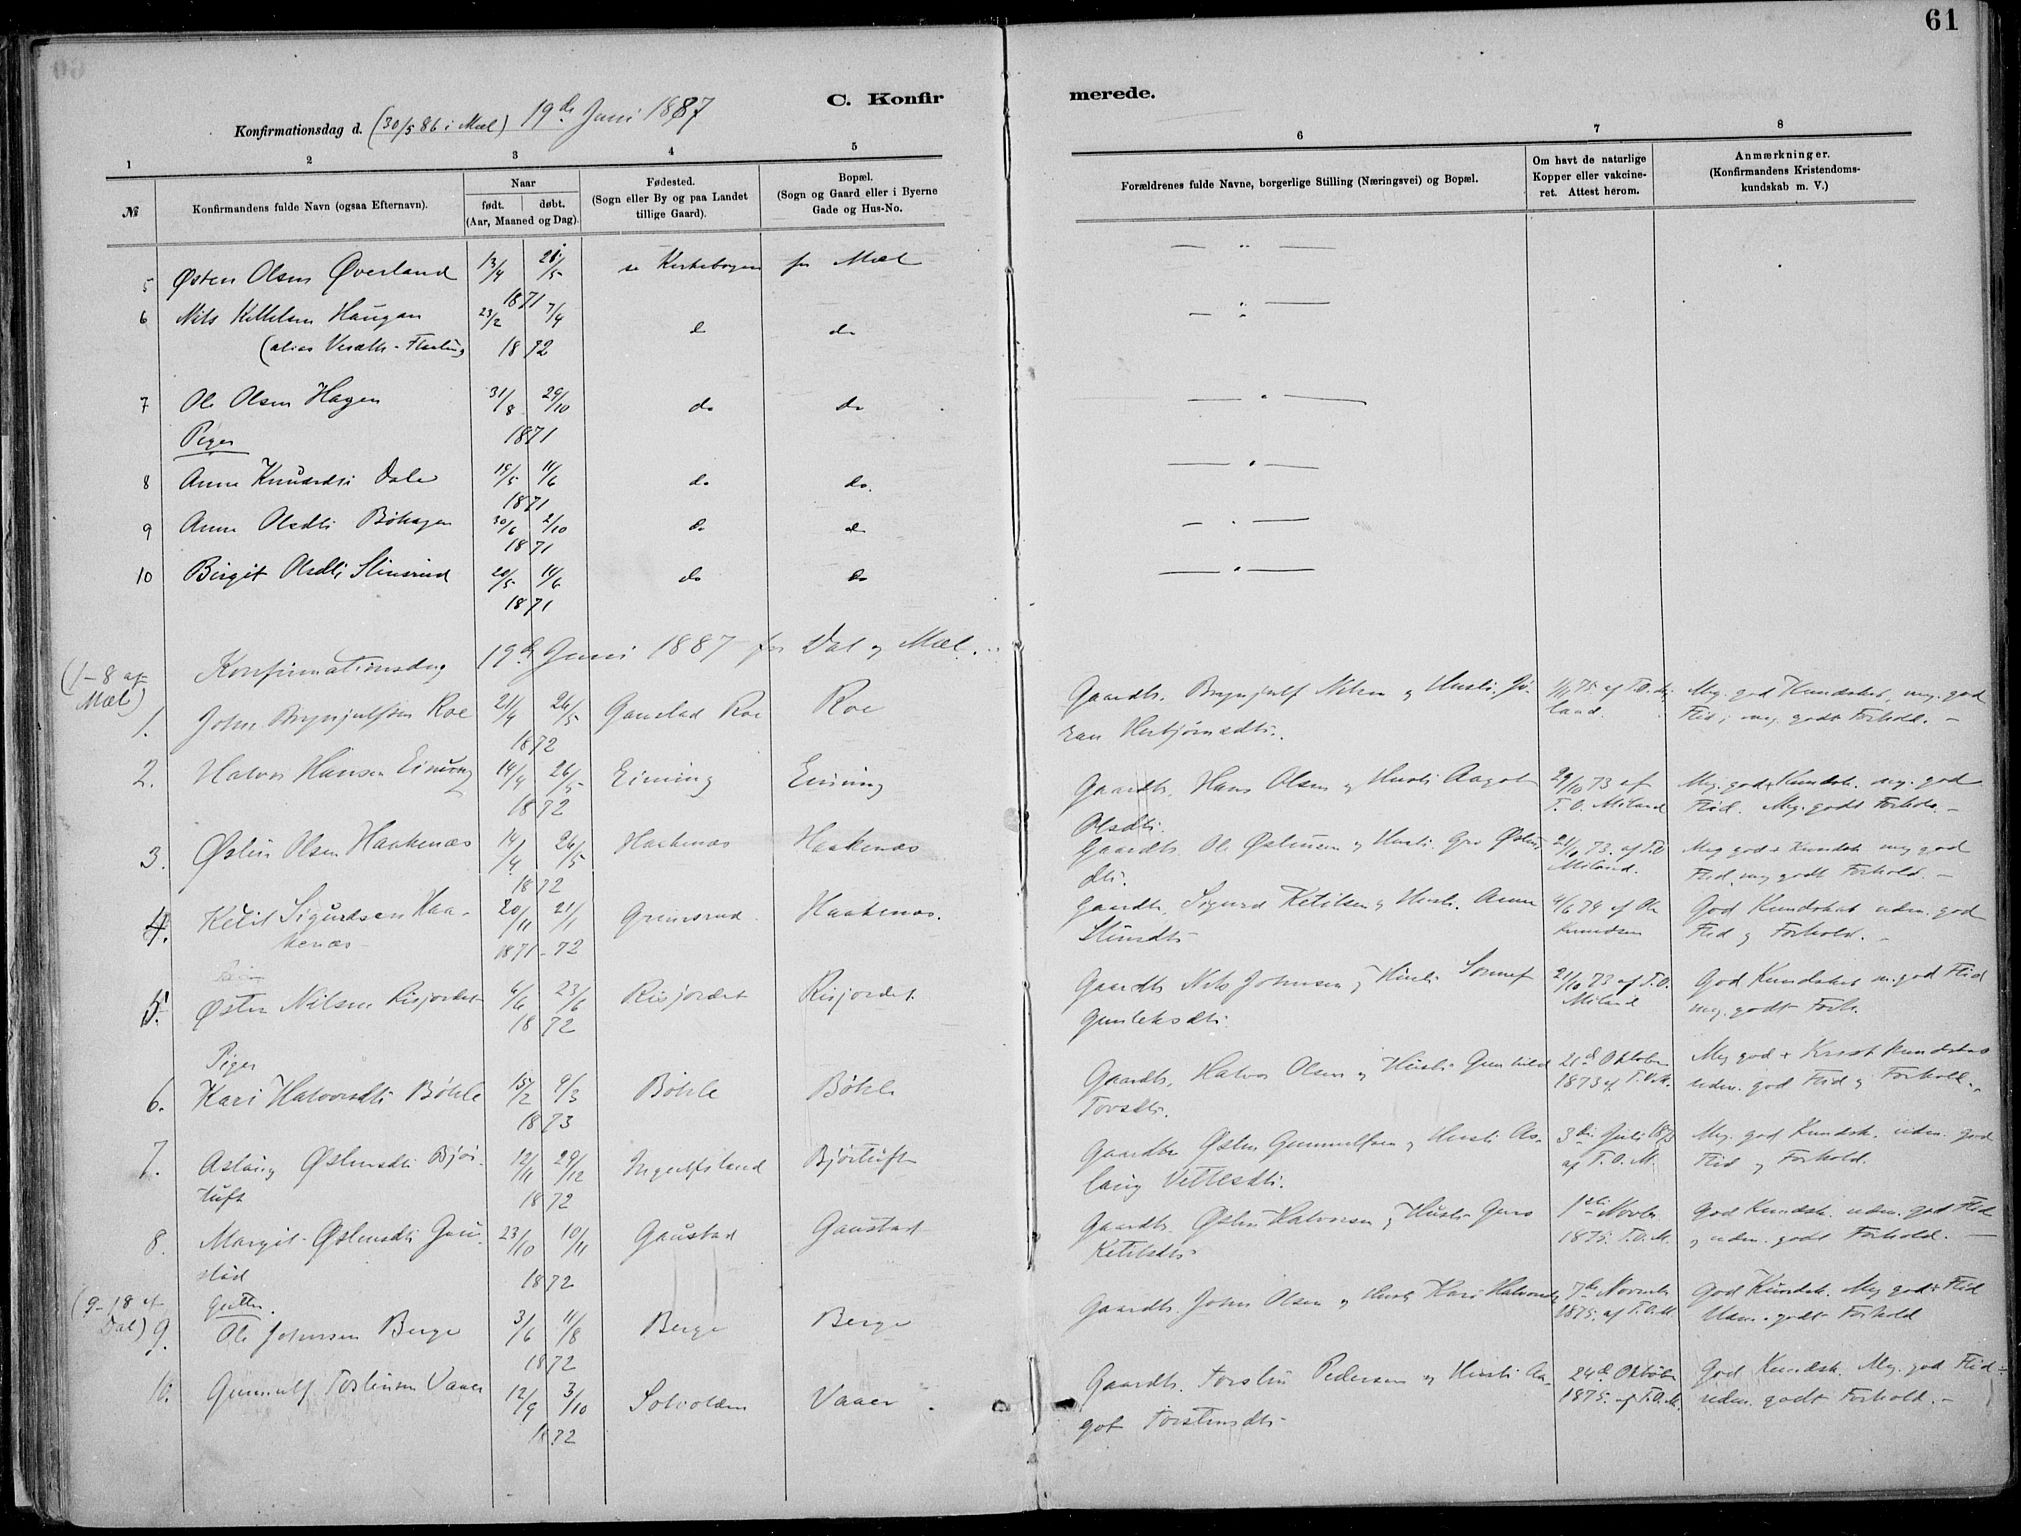 61
C. Konfirmerede.
Konfirmationsdag d. (30/5 86 i Mæl) 19de Juni 1887
1 2 3 4 5 6 7 8
№
Konfirmandens fulde Navn (ogsaa Efternavn).
Naar
født. døbt.
(Aar, Maaned og Dag).
Fødested.
(Sogn eller By og paa Landet
tillige Gaard).
Bopæl.
(Sogn og Gaard eller i Byerne
Gade og Hus-No.
Forældrenes fulde Navne, borgerlige Stilling (Næringsvei) og Bopæl.
Om havt de naturlige
Kopper eller vakcine-
ret. Attest herom.
Anmærkninger.
(Konfirmandens Kristendoms-
kundskab m. V.)
5 Østen Olsen Øverland 13/4 21/5 se Kirkebogen for Mæl — " —
1871
6 Nils Kittelsen Haugan 23/2 7/4 do do — " —
(alias
1872
7 Ole Olsen Hagen 31/8 29/10 do do — " —
Piger 1871
8 Anne Knudsdtr Dale 19/5 11/6 do do. — " —
1871
9 Anne Olsdtr Bøhagen 30/6 2/10 do do — " —
1871
10 Birgit Olsdtr 20/5 11/6 do do — " —
1871
Konfirmationsdag 19de Juni 1887 for Dal og Mæl.
(1-8 af
Mæl)
1. John Brynjulfsen Roe 21/4 26/5 Gaustad Roe Roe Gaardbr. Brynjulf Nilsen og Hustr. Jø- 1/11 75 af T.O. Mi- Meg. god Kundskab, meg. god
1872 ran Herbjørnsdtr. land. Flid, meg. godt Forhold. —
2. Halvor Hansen Einung 14/4 26/5 Einung Einung Gaardbr. Hans Olsen og Hustr. Aagot 29/10 73 af Meg. god Kundsk. meg. god
1872 Olsdtr. T. O. Miland Flid. Meg. godt Forhold. —
3. Østen Olsen Haakenæs 14/4 26/5 Haakenæs Haakenæs Gaardbr. Ole Østensen og Hustr. Gro Østens- 21/10 73. af T.O. Meg god Kundsk meg god
1872 dtr. Miland. Flid, meg godt Forhold. —
4. Ketil Sigurdsen Haa- 20/11 21/1 Grimsrud Haakenæs. Gaardbr. Sigurd Ketilsen og Hustr. Anne 4/6 74 af Ole God Kundskab udm. god
kenæs 1871-72 Knudsen Flid og Forhold. —
5. Østen Nilsen Risjordet 6/6 23/6 Risjordet Risjordet. Gaardbr. Nils Johnsen og Hustr. Sonnef 21/10 73 af T.O. God Kundskab m. god Flid
1872 Gunleksdtr. Miland meg. godt Forh.
Piger
6. Kari Halvorsdtr Bøhle 15/2 9/3 Bøhle Bøhle Gaardbr. Halvor Olsen og Hustr. Gunhild 21de Oktober Meg god Krist.kundskab
1873 Torsdtr. 1873 af T.O.M. udm. god Flid og Forhold.
7. Aslaug Østensdtr Bjør- 12/11 29/12 Ingulfsland Bjørtuft Gaardbr Østen Gunnulfsen og Hustr. As- 3die Juli 1873 Meg. god Kundsk. udm. god
tuft 1872 laug Vetlesdtr. af T.O.M. Flid og Forhold.
8. Margit Østensdtr Gau- 23/10 10/11 Gaustad Gaustad Gaardbr. Østen Halvorsen og Hustr. Guro 1ste Novbr. God Kundsk. udm. god Flid
stad 1872 Ketilsdtr 1875. T.O.M. og udm. godt Forhold. —
(9-18 af
Dal)
Gutter.
9. Ole Johnsen Berge 3/6 11/8 Berge Berge Gaardbr. John Olsen og Hustr. Kari Halvorsdtr 7de Novembr God Kundsk. Meg god Flid
1872 1875. af T.O.M. Udm. godt Forhold
10. Gunnulf Torstensen Vaaer 12/9 3/10 Vaaer Gaardbr. Torsten Pedersen og Hustr. Aa- 24de Oktober God Kundsk. Meg. god Flid
1872 got Torstensdtr 1875. af T.O.M. udm. godt Forhold. —